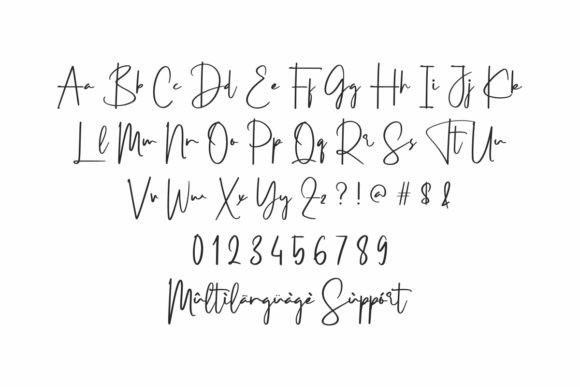 Aa Bb Cc Dd Ee Ff Gg Hh Ii Jj Kk
Ll Mm Nn Oo Pp Qq Rr Ss Tt Uu
Vv Ww Xx Yy Zz ? ! @ # $ &
0 1 2 3 4 5 6 7 8 9
Mûltìlängüàgè Sùppórt